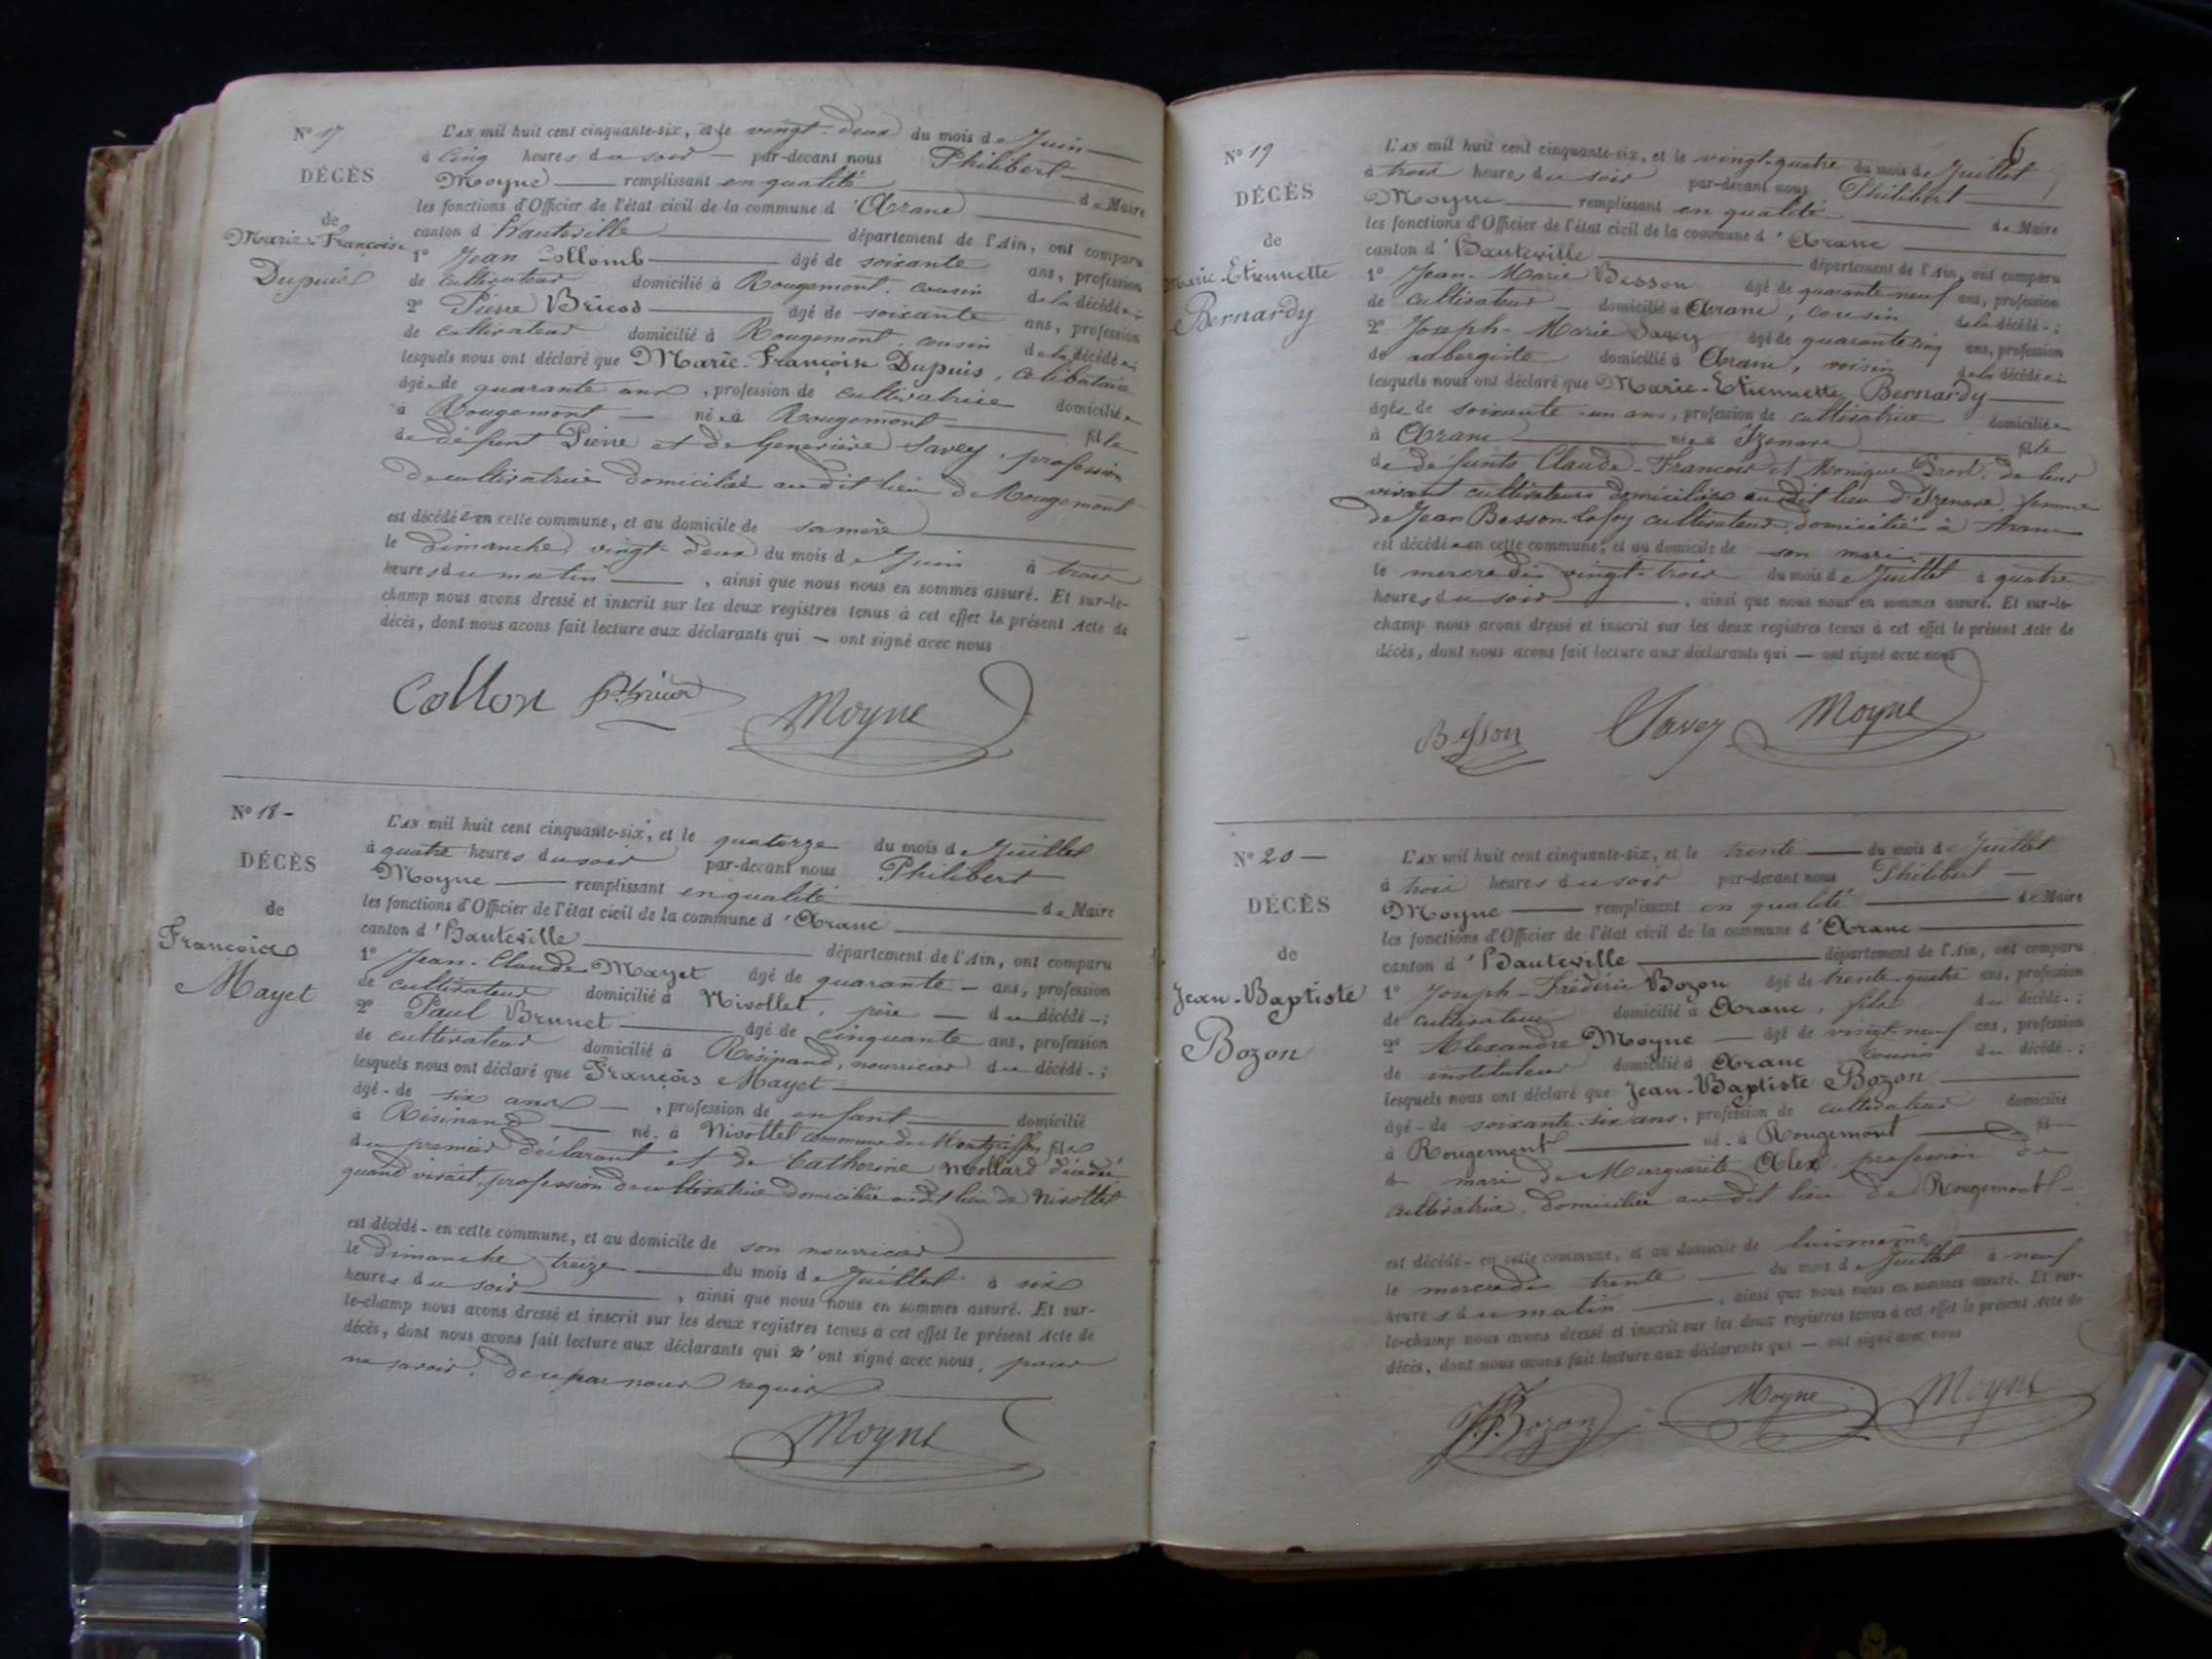 N° 17
DÉCÈS
de
Marie-Françoise
Dupuis
L'AN mil huit cent cinquante-six, et le vingt-deux du mois de Juin
à cinq heures du soir par-devant nous Philibert
Moyne remplissant en qualité de Maire
les fonctions d'Officier de l'état civil de la commune d'Aranc
canton d'Hauteville département de l'Ain, ont comparu
1° Jean Collomb âgé de soixante ans, profession
de cultivateur domicilié à Rougemont, cousin de la décédée;
2° Pierre Bricod âgé de soixante ans, profession
de cultivateur domicilié à Rougemont, cousin de la décédée;
lesquels nous ont déclaré que Marie-Françoise Dupuis, célibataire
âgée de quarante ans, profession de cultivatrice domiciliée
à Rougemont née à Rougemont fille
de défunt Pierre et de Genevière Savey, profession
de cultivatrice domiciliée audit lieu de Rougemont
est décédée en cette commune, et au domicile de sa mère
le Dimanche vingt-deux du mois de Juin à trois
heures du matin, ainsi que nous nous en sommes assuré. Et sur-le-
champ nous avons dressé et inscrit sur les deux registres tenus à cet effet le présent Acte de
décès, dont nous avons fait lecture aux déclarants qui — ont signé avec nous
Collon Moyne
N° 18 -
DÉCÈS
de
François
Mayet
L'AN mil huit cent cinquante-six, et le quatorze du mois de Juillet
à quatre heures du soir par-devant nous Philibert
Moyne remplissant en qualité de Maire
les fonctions d'Officier de l'état civil de la commune d'Aranc
canton d'Hauteville département de l'Ain, ont comparu
1° Jean-Claude Mayet âgé de quarante - ans, profession
de cultivateur domicilié à Nivollet, père — du décédé -;
2° Paul Brunet âgé de cinquante ans, profession
de cultivateur domicilié à Résinand, nourricier du décédé -;
lesquels nous ont déclaré que François Mayet
âgé - de six ans, profession de enfant domicilié
à Résinand né - à Nivollet commune de Montgriffon fils
du premier déclarant et de Catherine Mollard décédée
quand vivait, profession de cultivatrice domiciliée audit lieu de Nivollet
est décédé - en cette commune, et au domicile de son nourricier
le Dimanche treize du mois de Juillet à six
heures du soir, ainsi que nous nous en sommes assuré. Et sur-
le-champ nous avons dressé et inscrit sur les deux registres tenus à cet effet le présent Acte de
décès, dont nous avons fait lecture aux déclarants qui n'ont signé avec nous, pour
ne savoir, de ce par nous requis
Moyne
6
N° 19
DÉCÈS
de
Marie-Etiennette
Bernardy
L'AN mil huit cent cinquante-six, et le vingt-quatre du mois de Juillet
à trois heures du soir par-devant nous Philibert
Moyne remplissant en qualité de Maire
les fonctions d'Officier de l'état civil de la commune d'Aranc
canton d'Hauteville département de l'Ain, ont comparu
1° Jean-Marie Besson âgé de quarante-neuf ans, profession
de cultivateur domicilié à Aranc, cousin de la décédé -;
2° Joseph-Marie Savey âgé de quarante cinq ans, profession
de aubergiste domicilié à Aranc, voisin de la décédée;
lesquels nous ont déclaré que Marie-Etiennette Bernardy
âgée de soixante-un ans, profession de cultivatrice domiciliée
à Aranc née à Izenave fille
de défunts Claude-François et Monique Prost, de leur
vivant cultivateurs domiciliés audit lieu d'Izenave, femme
de Jean Besson Lafoy cultivateur, domicilié à Aranc
est décédée en cette commune, et au domicile de son mari
le mercredi vingt-trois du mois de Juillet à quatre
heures du soir, ainsi que nous nous en sommes assuré. Et sur-le-
champ nous avons dressé et inscrit sur les deux registres tenus à cet effet le présent Acte de
décès, dont nous avons fait lecture aux déclarants qui — ont signé avec nous
Besson Savey Moyne
N° 20 —
DÉCÈS
de
Jean-Baptiste
Bozon
L'AN mil huit cent cinquante-six, et le trente du mois de Juillet
à trois heures du soir par-devant nous Philibert
Moyne remplissant en qualité de Maire
les fonctions d'Officier de l'état civil de la commune d'Aranc
canton d'Hauteville département de l'Ain, ont comparu
1° Joseph-Frédéric Bozon âgé de trente-quatre ans, profession
de cultivateur domicilié à Aranc, fils du décédé -;
2° Alexandre Moyne âgé de vingt-neuf ans, profession
de instituteur domicilié à Aranc cousin du décédé -;
lesquels nous ont déclaré que Jean-Baptiste Bozon
âgé - de soixante-six ans, profession de cultivateur domicilié
à Rougemont né - à Rougemont fil
mari de Marguerite Alex, profession de
cultivatrice, domiciliée audit lieu de Rougemont
est décédé - en cette commune, et au domicile de lui-même
le mercredi trente du mois de Juillet à neuf
heures du matin, ainsi que nous nous en sommes assuré. Et sur-
le-champ nous avons dressé et inscrit sur les deux registres tenus à cet effet le présent Acte de
décès, dont nous avons fait lecture aux déclarants qui — ont signé avec nous
Bozon Moyne Moyne